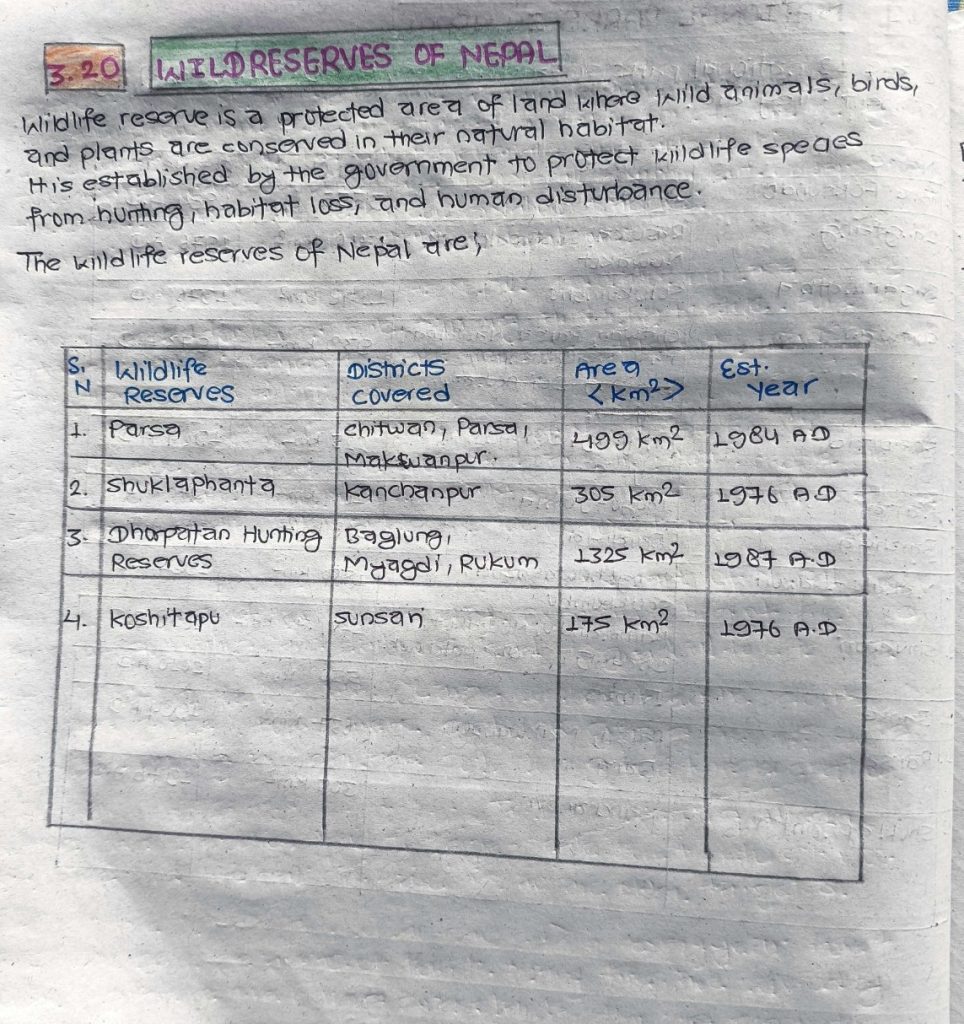 3.20 WILDRESERVES OF NEPAL
Wildlife reserve is a protected area of land where wild animals, birds,
and plants are conserved in their natural habitat.
It is established by the government to protect wildlife species
from hunting, habitat loss, and human disturbance.
The wildlife reserves of Nepal are;
S.N Wildlife Reserves Districts covered Area <km²> Est. Year
1. Parsa chitwan, Parsa, Makwanpur. 499 km² 1984 AD
2. Shuklaphanta Kanchanpur 305 km² 1976 A.D
3. Dhorpatan Hunting Reserves Baglung, Myagdi, Rukum 1325 km² 1987 A.D
4. Koshitapu sunsari 175 km² 1976 A.D